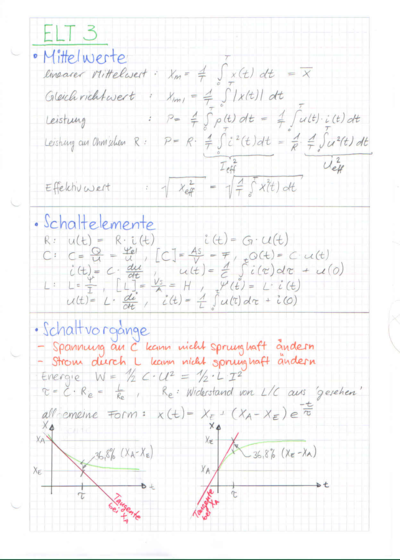 ELT 3
• Mittelwerte
linearer Mittelwert : Xm = 1/T ∫₀ᵀ x(t) dt = x̄
Gleichrichtwert : X|m| = 1/T ∫₀ᵀ |x(t)| dt
Leistung : P = 1/T ∫₀ᵀ p(t) dt = 1/T ∫₀ᵀ u(t) · i(t) dt
Leistung an Ohmschen R : P = R · 1/T ∫₀ᵀ i²(t) dt = 1/R · 1/T ∫₀ᵀ u²(t) dt
I²eff U²eff
Effektivwert : √X²eff = √1/T ∫₀ᵀ x²(t) dt
• Schaltelemente
R: u(t) = R · i(t) i(t) = G · u(t)
C: C = Q/U , [C] = As/V = F , Q(t) = C · u(t)
i(t) = C · du/dt , u(t) = 1/C ∫ i(τ) dτ + u(0)
L: L = Ψ/I , [L] = Vs/A = H , Ψ(t) = L · i(t)
u(t) = L · di/dt , i(t) = 1/L ∫ u(τ) dτ + i(0)
• Schaltvorgänge
– Spannung an C kann nicht sprunghaft ändern
– Strom durch L kann nicht sprunghaft ändern
Energie W = 1/2 C · U² = 1/2 · L I²
τ = C · RE = L/RE , RE: Widerstand von L/C aus 'gesehen'
allgemeine Form : x(t) = XE + (XA – XE) e^-t/τ
X
XA
XE
36,8% (XA – XE)
τ
t
Tangente
bei XA
X
XE
XA
36,8% (XE – XA)
τ
t
Tangente
bei XA